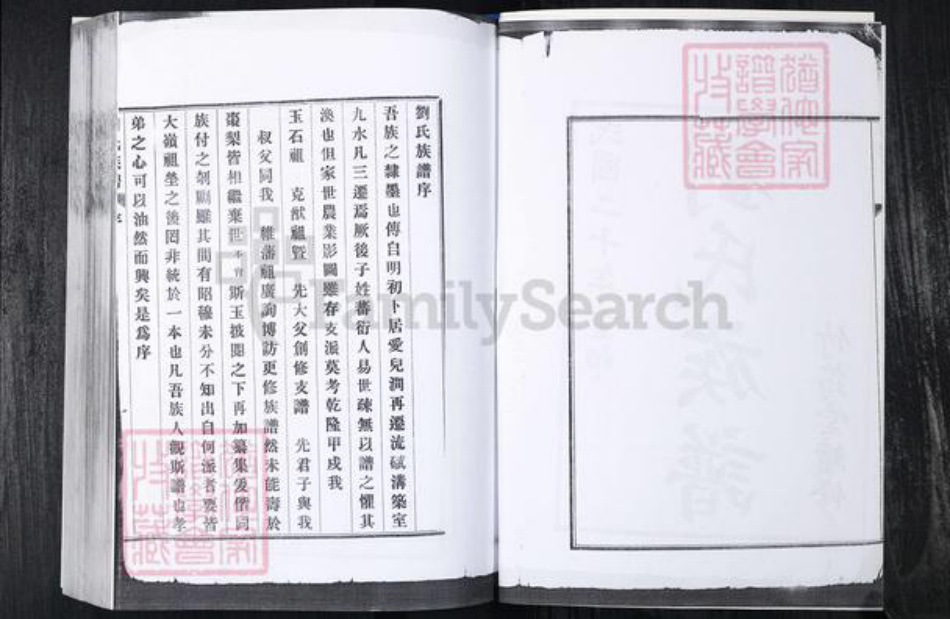 劉氏族譜序
吾族之隸墨也傳自明初卜居愛兒澗再遷流砥溝築室
九水凡三遷焉厥後子姓蕃衍人易世疎無以譜之懼其
渙也但家世農業影圖雖存支派莫考乾隆甲戌我
玉石祖 克猷祖暨 先大父創修支譜 先君子與我
叔父同我 維藩祖廣詢博訪更修族譜然未能壽於
棗梨皆相繼棄世 斯玉披閱之下再加纂集爰偕同
族付之剞劂雖其間有昭穆未分不知出自何派者要皆
大嶺祖塋之後罔非統於一本也凡吾族人觀斯譜也孝
弟之心可以油然而興矣是為序
FamilySearch
猶他家
譜學會
收藏
猶他家
譜學會
收藏
氏
族
譜